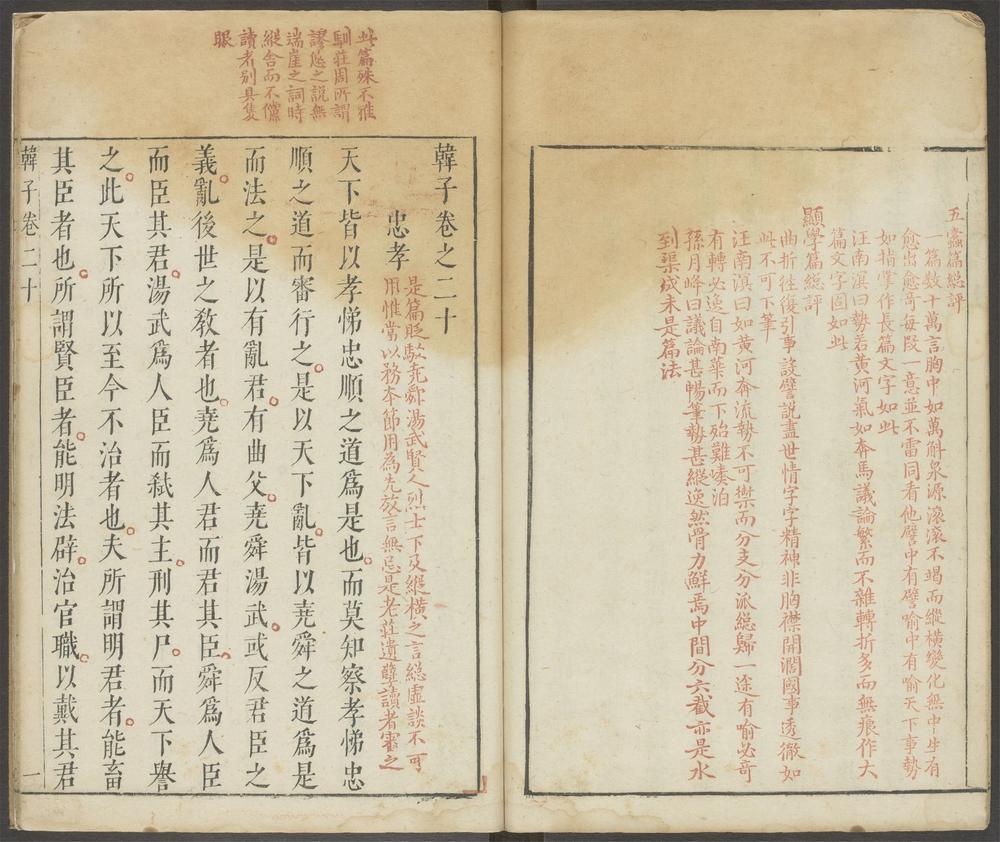 五蠹篇總評
一篇數十萬言胸中如萬斛泉源滾滾不竭而縱橫變化無中生有
愈出愈奇每段一意並不雷同看他譬中有譬喻中有喻天下事勢
如指掌作長篇文字如此
汪南溟曰勢若黃河氣如奔馬議論繁而不雜轉折多而無痕作大
篇文字固如此
顯學篇總評
曲折往復引事設譬說盡世情字字精神非胸襟開濶國事透徹如
此不可下筆
汪南溟曰如黃河奔流勢不可禦而分支分派總歸一途有喻必奇
有轉必逸自南華而下殆難嗟泊
孫月峰曰議論甚暢筆勢甚縱逆然骨力鮮焉中間分六截亦是水
到渠成未是篇法
此篇殊不雅
馴莊周所謂
謬悠之說無
端崖之詞時
縱舍而不儻
讀者別具隻
眼
韓子卷之二十
忠孝
是篇貶駁堯舜湯武賢人烈士下及縱橫之言總虛談不可
用惟當以務本節用為先放言無忌是老莊遺孽讀者審之
天下皆以孝悌忠順之道爲是也而莫知察孝悌忠
順之道而審行之是以天下亂皆以堯舜之道爲是
而法之是以有亂君有曲父堯舜湯武或反君臣之
義亂後世之教者也堯爲人君而君其臣舜爲人臣
而臣其君湯武爲人臣而弑其主刑其尸而天下譽
之此天下所以至今不治者也夫所謂明君者能畜
其臣者也所謂賢臣者能明法辟治官職以戴其君
韓子卷二十 一